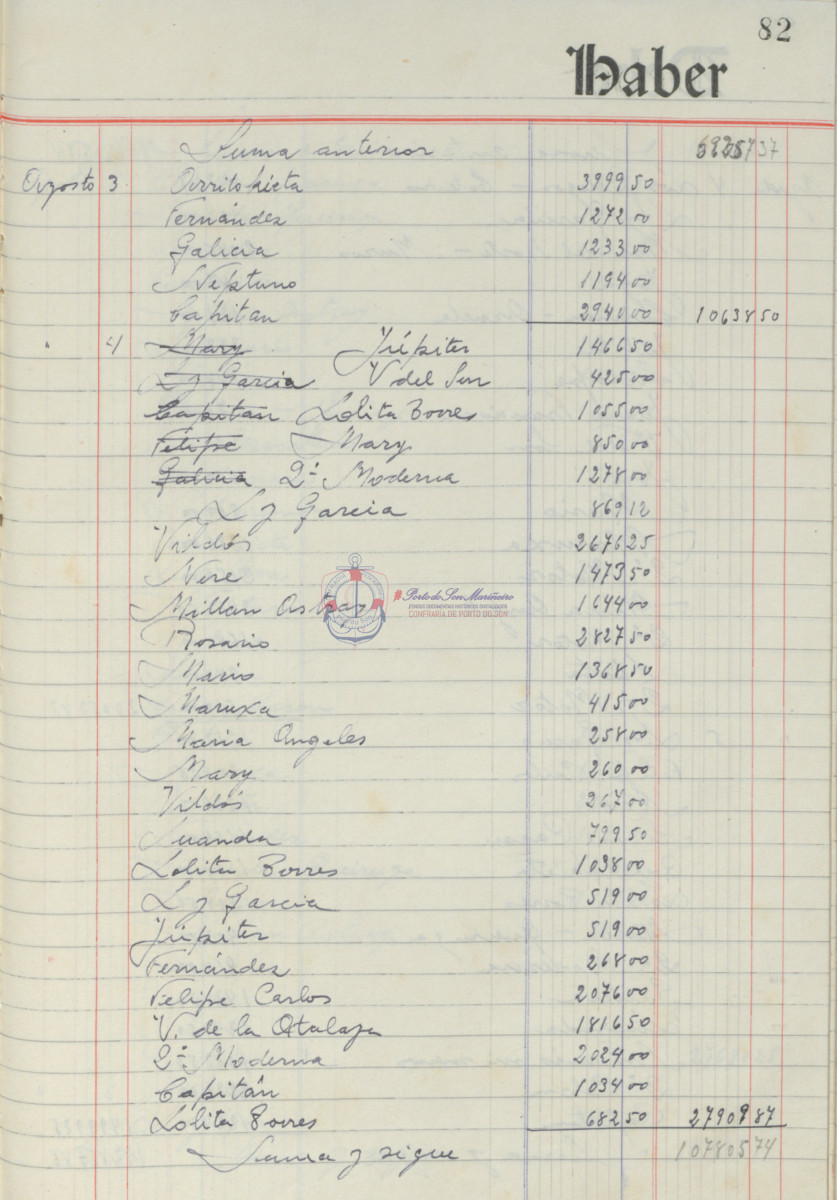 82
Haber
Suma anterior 69257 37
Agosto 3 Arritokieta 3999 50
Fernández 1272 00
Galicia 1233 00
Neptuno 1194 00
Capitan 2940 00 10638 50
" 4 Mary Júpiter 1466 50
L y Garcia V del Son 425 00
Capitan Lolita Torres 1055 00
Felipe Mary 850 00
Galicia 2ª Moderna 1278 00
L y Garcia 869 12
Vildós 2676 25
Nere 1473 50
Millan Astray 1644 00
Rosario 2827 50
Mario 1368 50
Maruxa 415 00
Maria Angeles 258 00
Mary 260 00
Vildós 267 00
Luanda 799 50
Lolita Torres 1038 00
L y Garcia 519 00
Júpiter 519 00
Fernández 268 00
Felipe Carlos 2076 00
V. de la Atalaya 1816 50
2ª Moderna 2024 00
Capitán 1034 00
Lolita Torres 682 50 27909 87
Suma y sigue 107805 74
#Porto do Son Mariñeiro
FONDOS DOCUMENTAIS HISTÓRICOS DIXITALIZADOS
CONFRARÍA DE PORTO DO SON